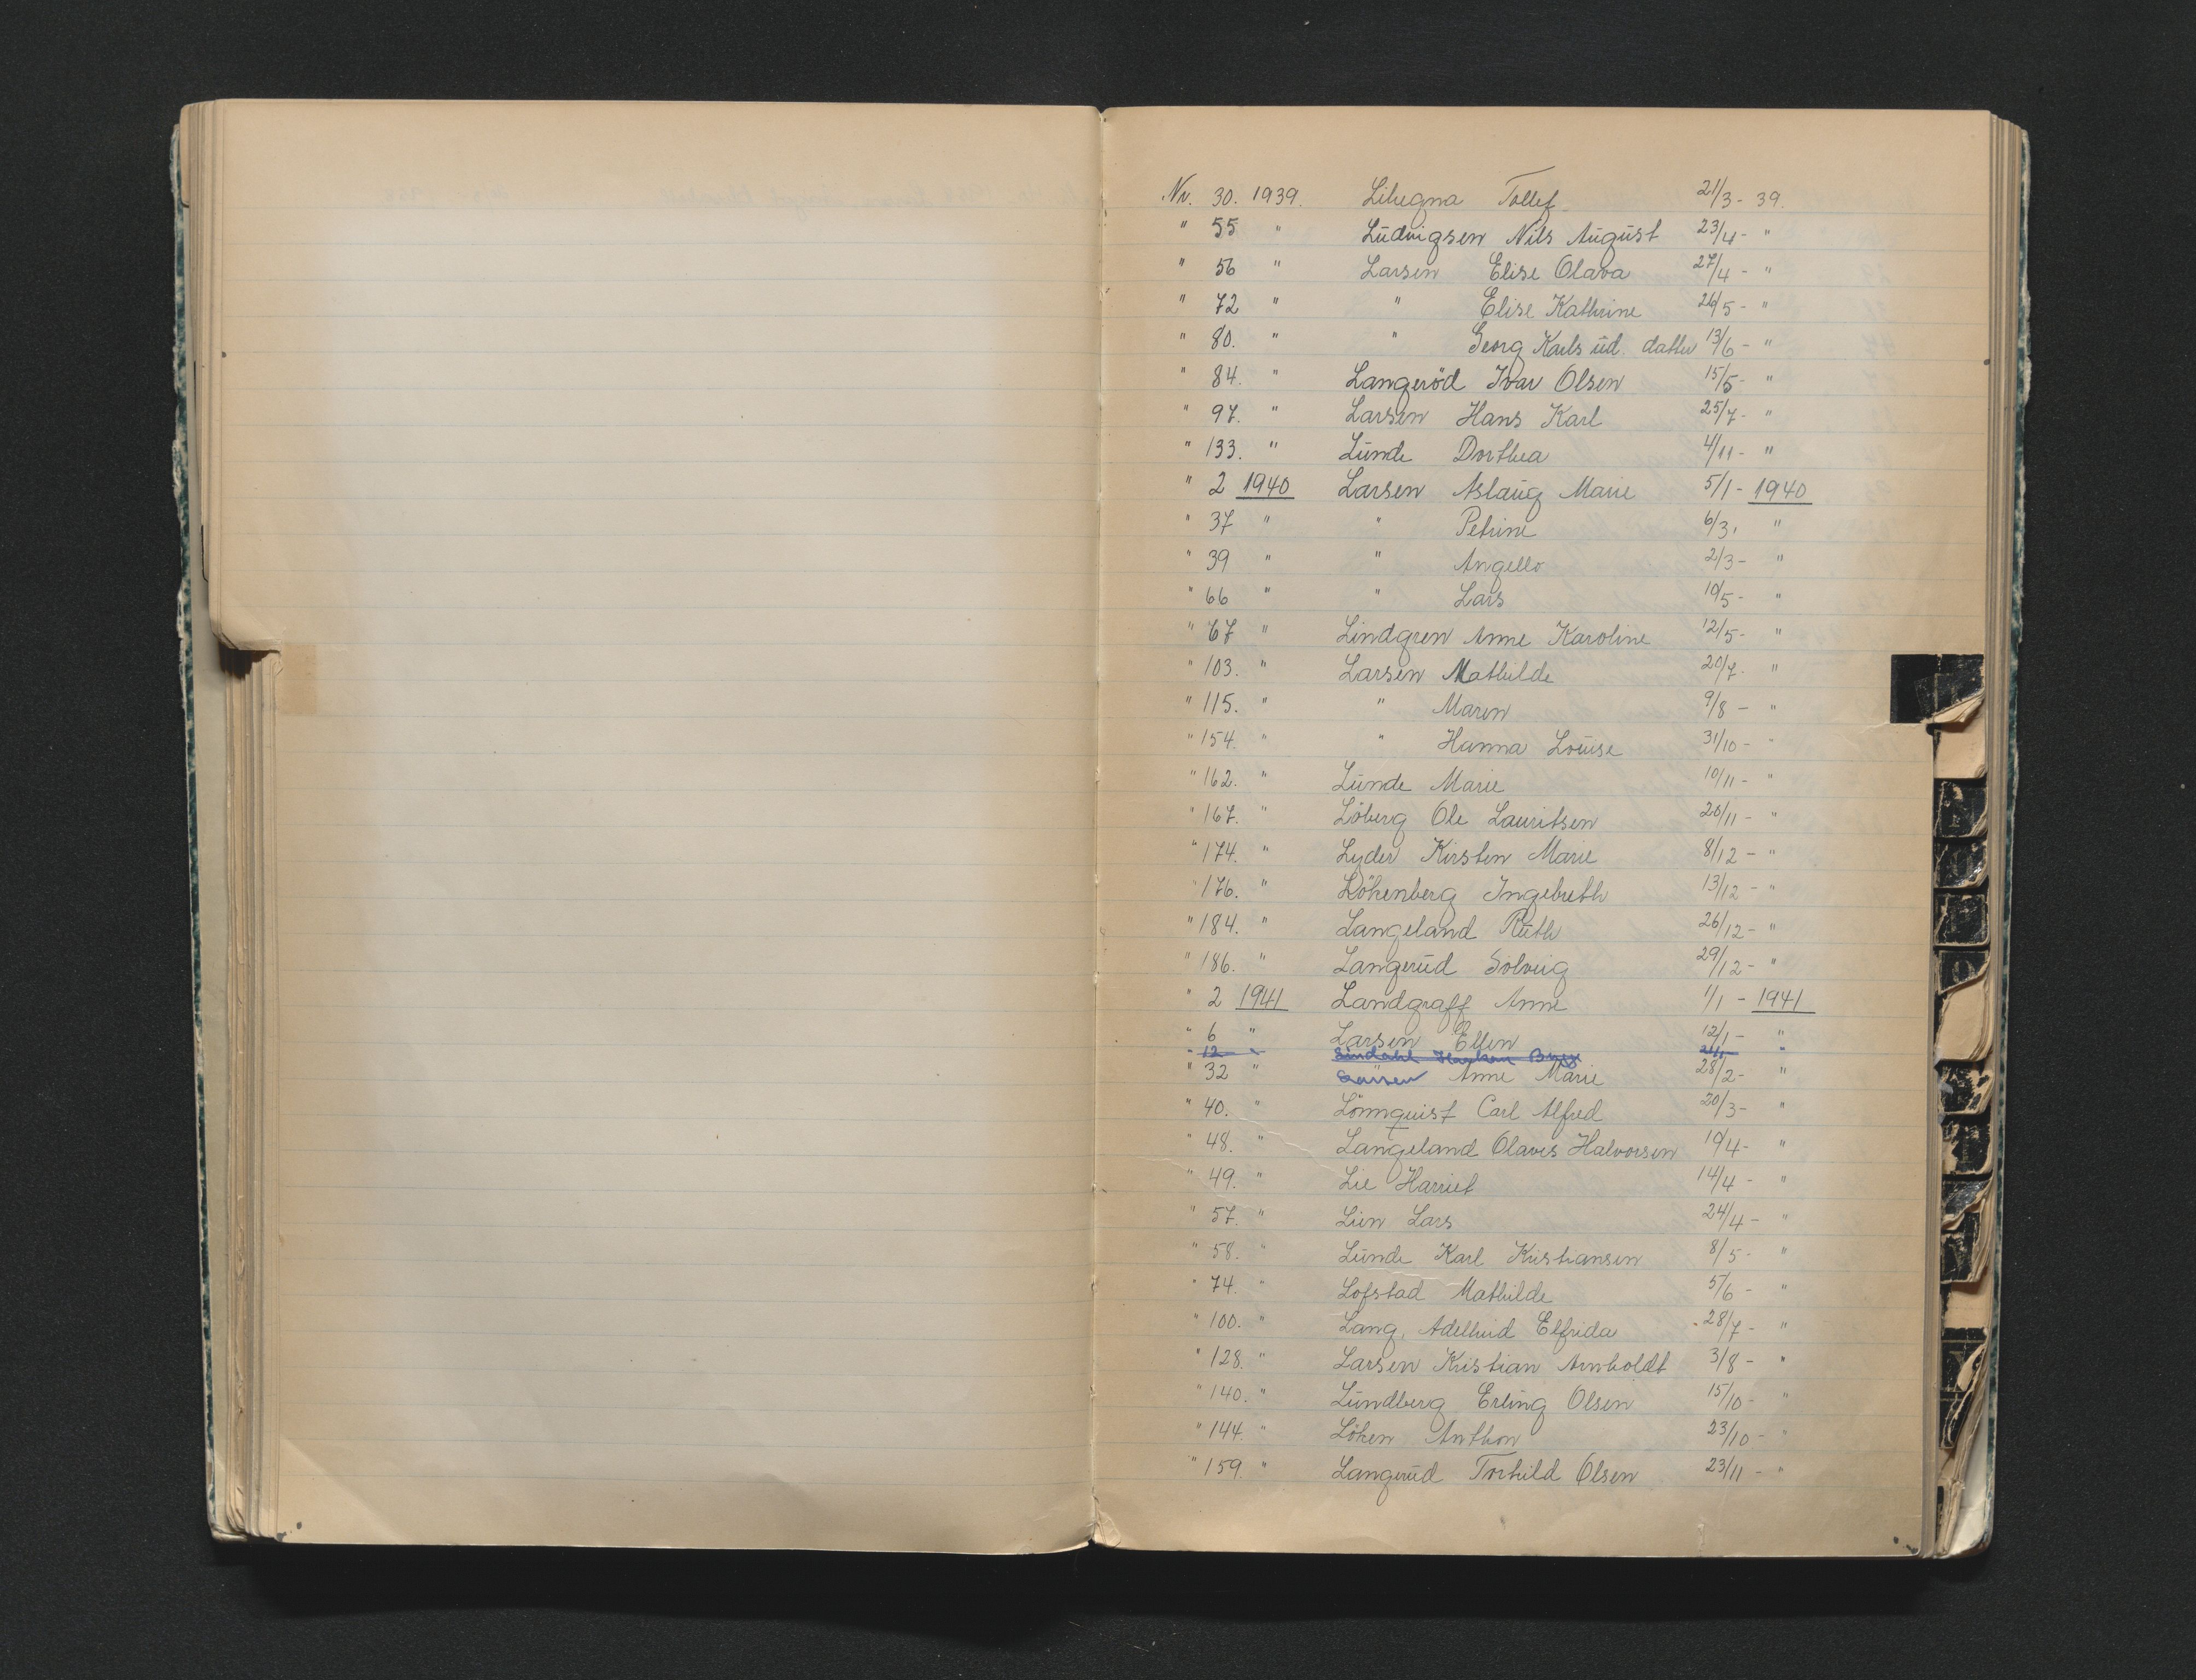 Nr. 30. 1939. Lihegna Tollef 21/3 - 39.
" 55 " Ludvigsen Nils August 23/4 - "
" 56 " Larsen Elise Olava 27/4 - "
" 72 " " Elise Kathrine 26/5 - "
" 80. " " Georg Karls ud. datter 13/6 - "
" 84. " Langeröd Ivar Olsen 15/5 - "
" 97. " Larsen Hans Karl 25/7 - "
" 133. " Lunde Dorthea 4/11 - "
" 2 1940 Larsen Aslaug Marie 5/1 - 1940
" 37 " " Petrine 6/3, "
" 39 " " Angello 2/3 - "
" 66 " " Lars 10/5 - "
" 67 " Lindgren Anne Karoline 12/5 - "
" 103. " Larsen Mathilde 20/7 - "
" 115. " " Maren 9/8 - "
" 154. " " Hanna Louise 31/10 - "
" 162. " Lunde Marie 10/11 - "
" 167. " Löberg Ole Lauritsen 20/11 - "
" 174. " Lyder Kirsten Marie 8/12 - "
" 176. " Lökenberg Ingebreth 13/12 - "
" 184. " Langeland Ruth 26/12 - "
" 186. " Langerud Solveig 29/12 - "
" 2 1941 Landgraff Anne 1/1 - 1941
" 6 " Larsen Ellen 12/1 - "
" 12 " Lindahl Haakon "
" 32 " Larsen Anne Marie 28/2 - "
" 40. " Lönnquist Carl Alfred 20/3 - "
" 48. " Langeland Olaves Halvorsen 19/4 - "
" 49. " Lie Harriet 14/4 - "
" 57. " Lien Lars 24/4 - "
" 58. " Lunde Karl Kristiansen 8/5 - "
" 74. " Lofstad Mathilde 5/6 - "
" 100. " Lang, Adelheid Elfrida 28/7 - "
" 128. " Larsen Kristian Arnholdt 3/8 - "
" 140. " Lundberg Erling Olsen 15/10 - "
" 144. " Löken Anthon 23/10 - "
" 159. " Langerud Torhild Olsen 23/11 - "